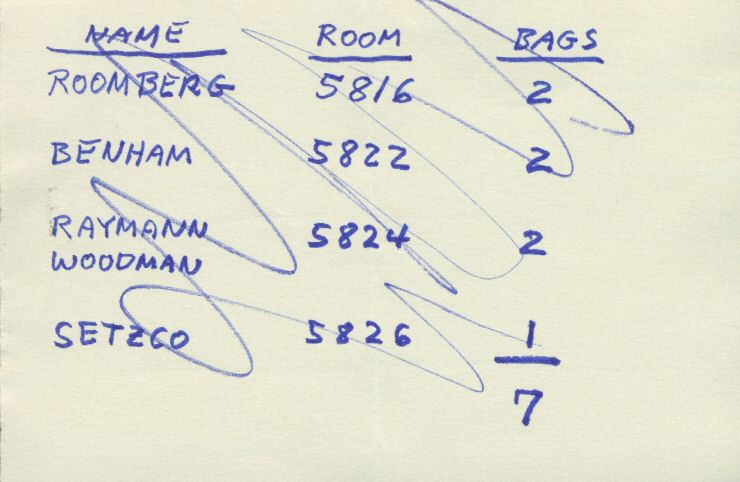 NAME ROOM BAGS
ROOMBERG 5816 2
BENHAM 5822 2
RAYMANN 5824 2
WOODMAN
SETZCO 5826 1
7